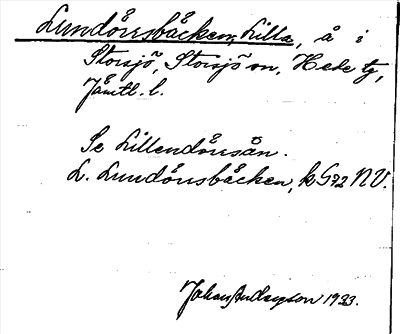 Lundörsbäcken, Lilla, å i
Storsjö, Storsjö sn, Hede tg,
Jämtl. l.
Se Lillendörsån.
L. Lundörsbäcken, k G72 NV.
Johan Andersson 1933.